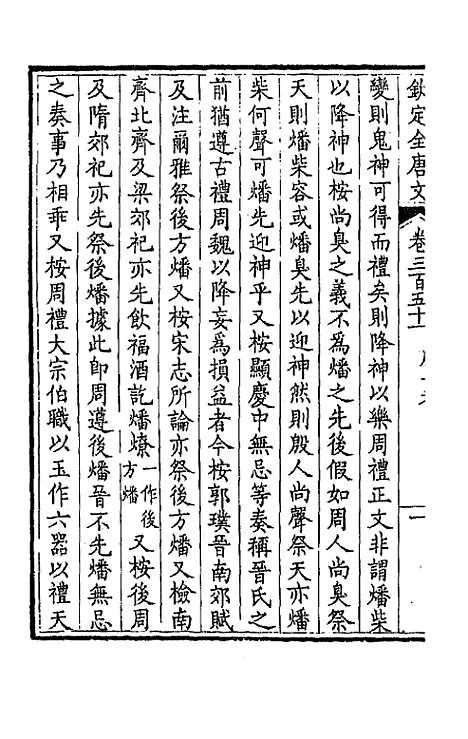 欽定全唐文
卷三百五十
一
變則鬼神可得而禮矣則降神以樂周禮正文非謂燔柴
以降神也桉尚臭之義不為燔之先後假如周人尚臭祭
天則燔柴容或燔臭先以迎神然則殷人尚聲祭天亦燔
柴何聲可燔先迎神乎又桉顯慶中無忌等奏稱晉氏之
前猶遵古禮周魏以降妄為損益者今桉郭璞晉南郊賦
及注爾雅祭後方燔又桉宋志所論亦祭後方燔又檢南
齊北齊及梁郊祀亦先飲福酒訖燔燎一作後方燔又桉後周
及隋郊祀亦先祭後燔據此即周遵後燔晉不先燔無忌
之奏事乃相乖又桉周禮大宗伯職以玉作六器以禮天